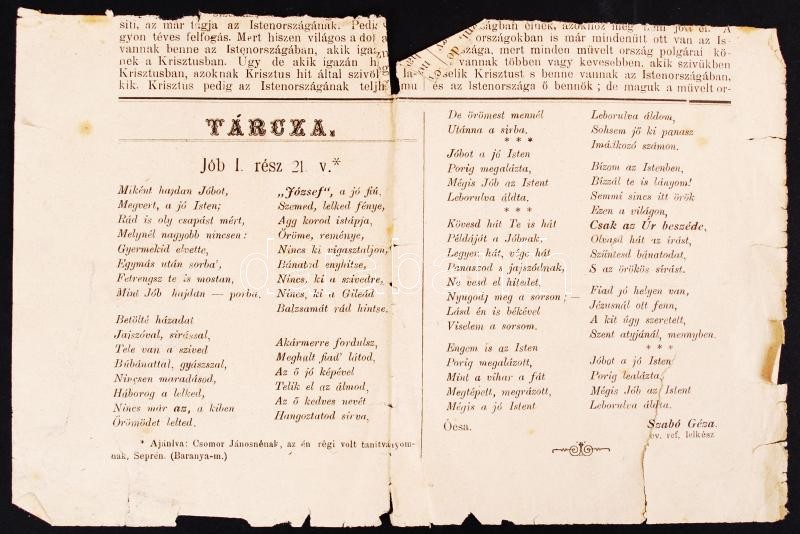 siti, az már tagja az Istenországának. Pedig
gyon téves felfogás. Mert hiszen világos a dol
vannak benne az Istenországában, akik igaz
nek a Krisztusban. Ugy de akik igazán h
Krisztusban, azoknak Krisztus hit által szivöl
kik. Krisztus pedig az Istenországának teljh
TÁRCZA.
Jób I. rész 21. v.*
Miként hajdan Jóbot,
Megvert, a jó Isten;
Rád is oly csapást mért,
Melynél nagyobb nincsen:
Gyermekid elvette,
Egymás után sorba',
Fetrengsz te is mostan,
Mint Jób hajdan — porba.
Betölté házadat
Jajszóval, sirással,
Tele van a szived
Búbánattal, gyászszal,
Nincsen maradásod,
Háborog a lelked,
Nincs már az, a kiben
Örömödet lelted.
„József", a jó fiú.
Szemed, lelked fénye,
Agg korod istápja,
Öröme, reménye,
Nincs ki vigasztaljon,
Bánatod enyhitse,
Nincs, ki a szivedre,
Nincs, ki a Gileád
Balzsamát rád hintse.
Akármerre fordulsz,
Meghalt fiad' látod,
Az ő jó képével
Telik el az álmod,
Az ő kedves nevét
Hangoztatod sirva,
* Ajánlva: Csomor Jánosnénak, az én régi volt tanitványom-
nak, Seprén. (Baranya-m.)
országokban is már mindenütt ott van az Is-
szága, mert minden müvelt ország polgárai kö-
vannak többen vagy kevesebben, akik szivükben
la- selik Krisztust s benne vannak az Istenországában,
mu és az Istenország a ő bennök; de maguk a müvelt or-
De örömest mennél
Utánna a sirba.
* * *
Jóbot a jó Isten
Porig megalázta,
Mégis Jób az Istent
Leborulva áldta.
* * *
Kövesd hát Te is hát
Példáját a Jóbnak,
Legyen hát, vége hát
Panaszod s jajszódnak,
Ne vesd el hitedet.
Nyugodj meg a sorson; —
Lásd én is békével
Viselem a sorsom.
Engem is az Isten
Porig megalázott,
Mint a vihar a fát
Megtépett, megrázott,
Mégis a jó Istent
Leborulva áldom,
Sohsem jő ki panasz
Imádkozó számon.
Bizom az Istenben,
Bizzál te is lányom!
Semmi sincs itt örök
Ezen a világon,
Csak az Úr beszéde,
Olvasd hát az irást,
Szüntesd bánatodat,
S az örökös sirást.
Fiad jó helyen van,
Jézusnál ott fenn,
A kit úgy szeretett,
Szent atyjánál, mennyben.
* * *
Jóbot a jó Isten
Porig lealázta,
Mégis Jób az Istent
Leborulva áldta.
Ócsa.
Szabó Géza.
ev. ref. lelkész